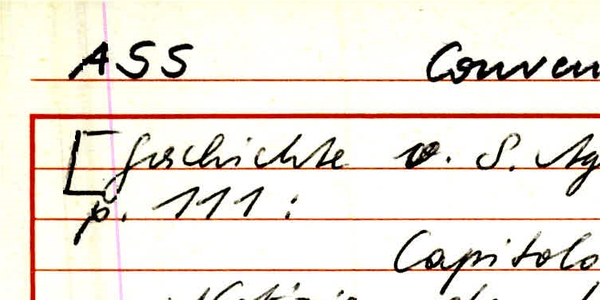 ASS Conven
[Geschichte v. S. Ag
p. 111:
Capitolo